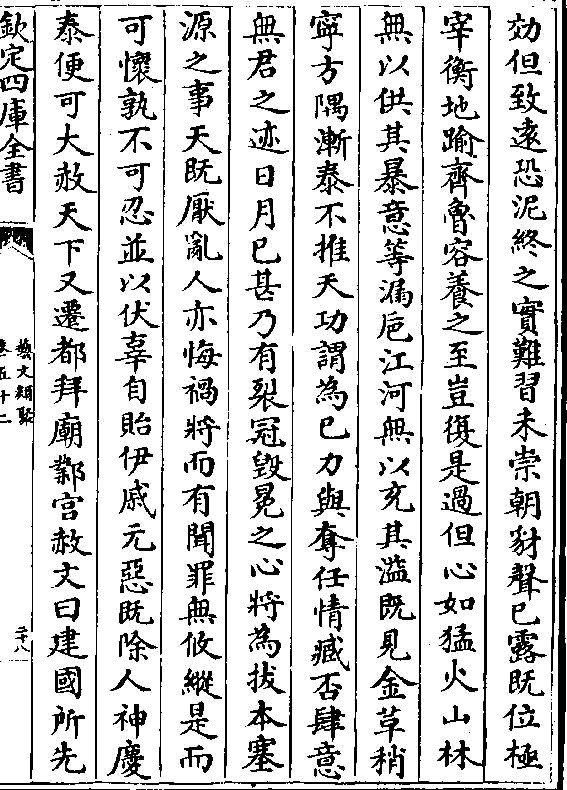 効但致逺恐泥終之實難習未崇朝豺聲已露既位極
宰衡地踰齊魯容養之至豈復是過但心如猛火山林
無以供其暴意等漏巵江河無以充其溢既見金草稍
寧方隅漸泰不推天功謂為已力與奪任情臧否肆意
無君之迹日月已甚乃有裂冠毁冕之心將為拔本塞
源之事天既厭亂人亦悔禍將而有聞罪無攸縱是而
可懷孰不可忍並以伏辜自貽伊戚元惡既除人神慶
泰便可大赦天下又遷都拜廟鄴宫赦文曰建國所先
欽定四庫全書
藝文類聚
卷五十二
二十八